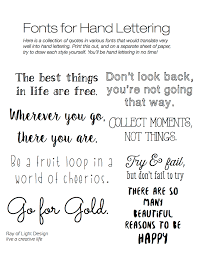 Fonts for Hand Lettering
Here is a collection of quotes in various fonts that would translate very
well into hand lettering. Print this out, and on a separate sheet of paper,
try to draw each style yourself. You'll be hand lettering in no time!
The best things
in life are free.
Don't look back,
you're not going
that way.
Wherever you go,
there you are.
COLLECT MOMENTS,
NOT THINGS.
Be a fruit loop in a
world of cheerios.
Try & fail,
but don't fail to try
Go for Gold.
THERE ARE SO
MANY
BEAUTIFUL
REASONS TO BE
HAPPY
Ray of Light Design
live a creative life